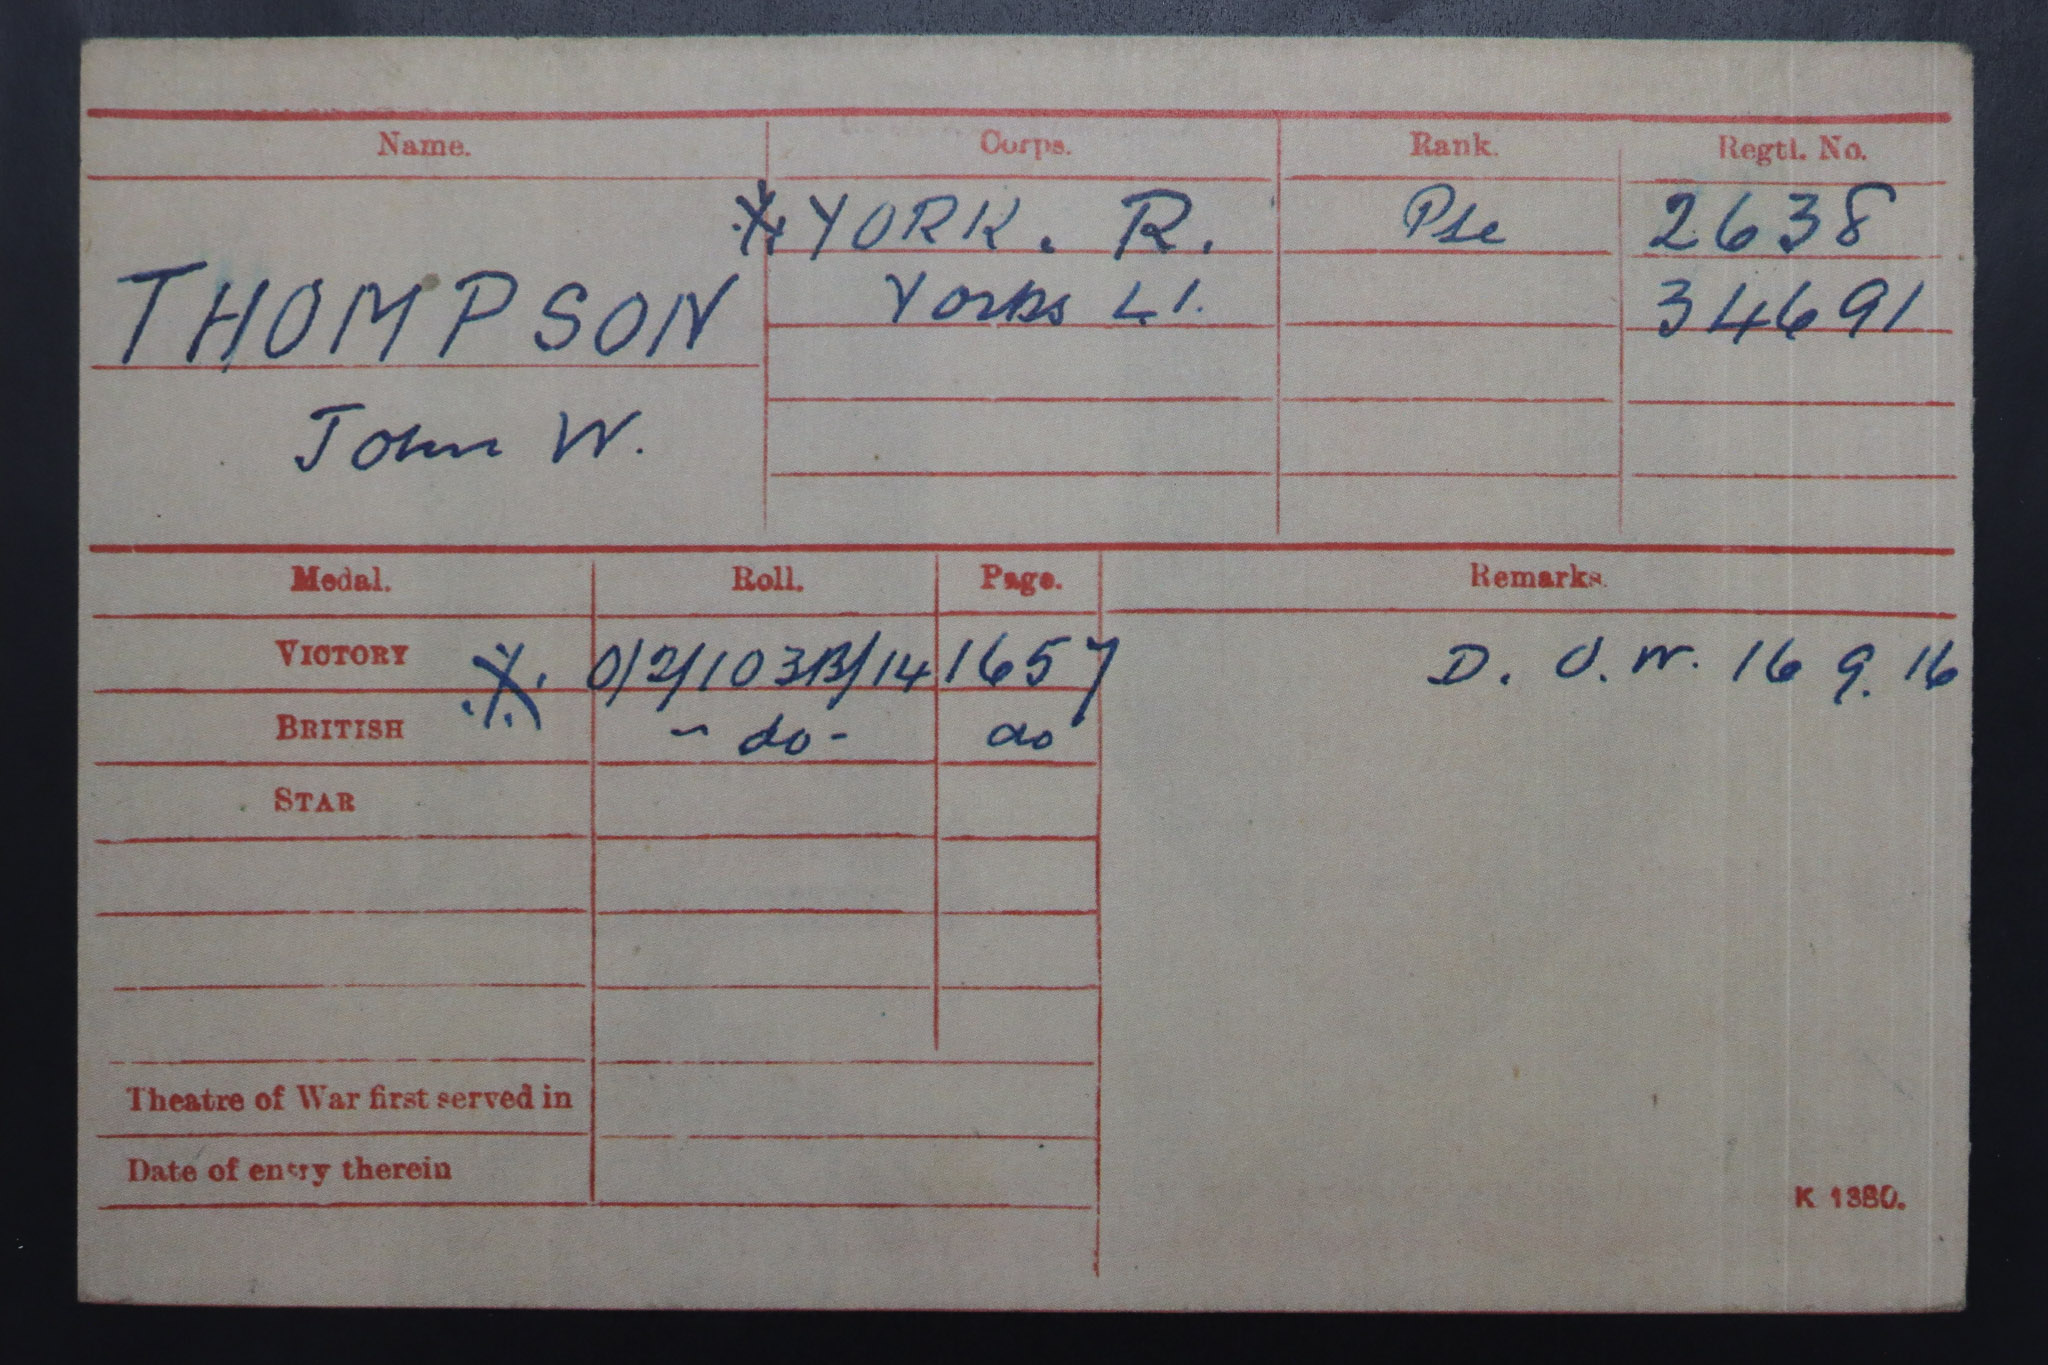 Name. Corps. Rank. Regtl. No.
THOMPSON
John W.
YORK. R. Pte 2638
Yorks L.I. 34691
Medal. Roll. Page. Remarks.
VICTORY O/2/103B/14 1657 D. O. W. 16 9. 16
BRITISH - do - do
STAR
Theatre of War first served in
Date of entry therein
K 1380.